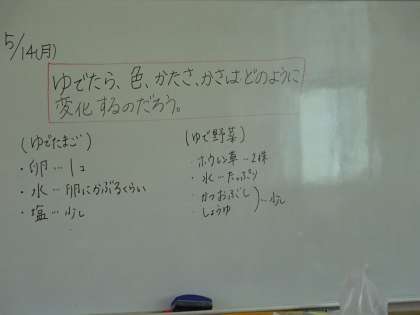 5/14(月)
ゆでたら、色、かたさ、かさはどのように
変化するのだろう。
(ゆでたまご)
・卵…1コ
・水…卵にかぶるくらい
・塩…少し
(ゆで野菜)
・ホウレン草…2株
・水…たっぷり
・かつおぶし
・しょうゆ
…少し